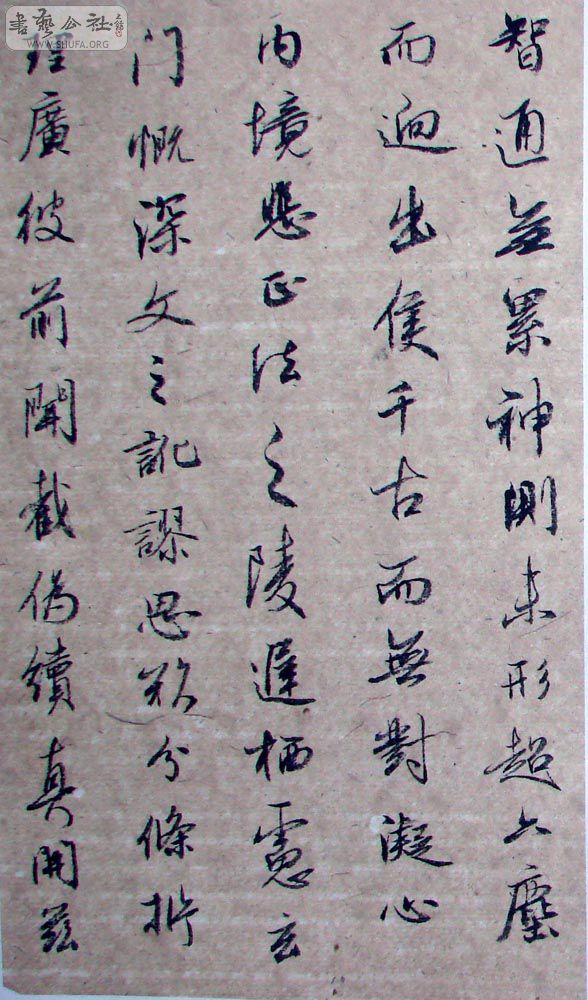 智通無累神測未形超六塵
而迥出隻千古而無對凝心
内境悲正法之陵遲栖慮玄
门慨深文之訛謬思欲分條析
理廣彼前聞截偽續真開茲
書藝公社
WWW.SHUFA.ORG